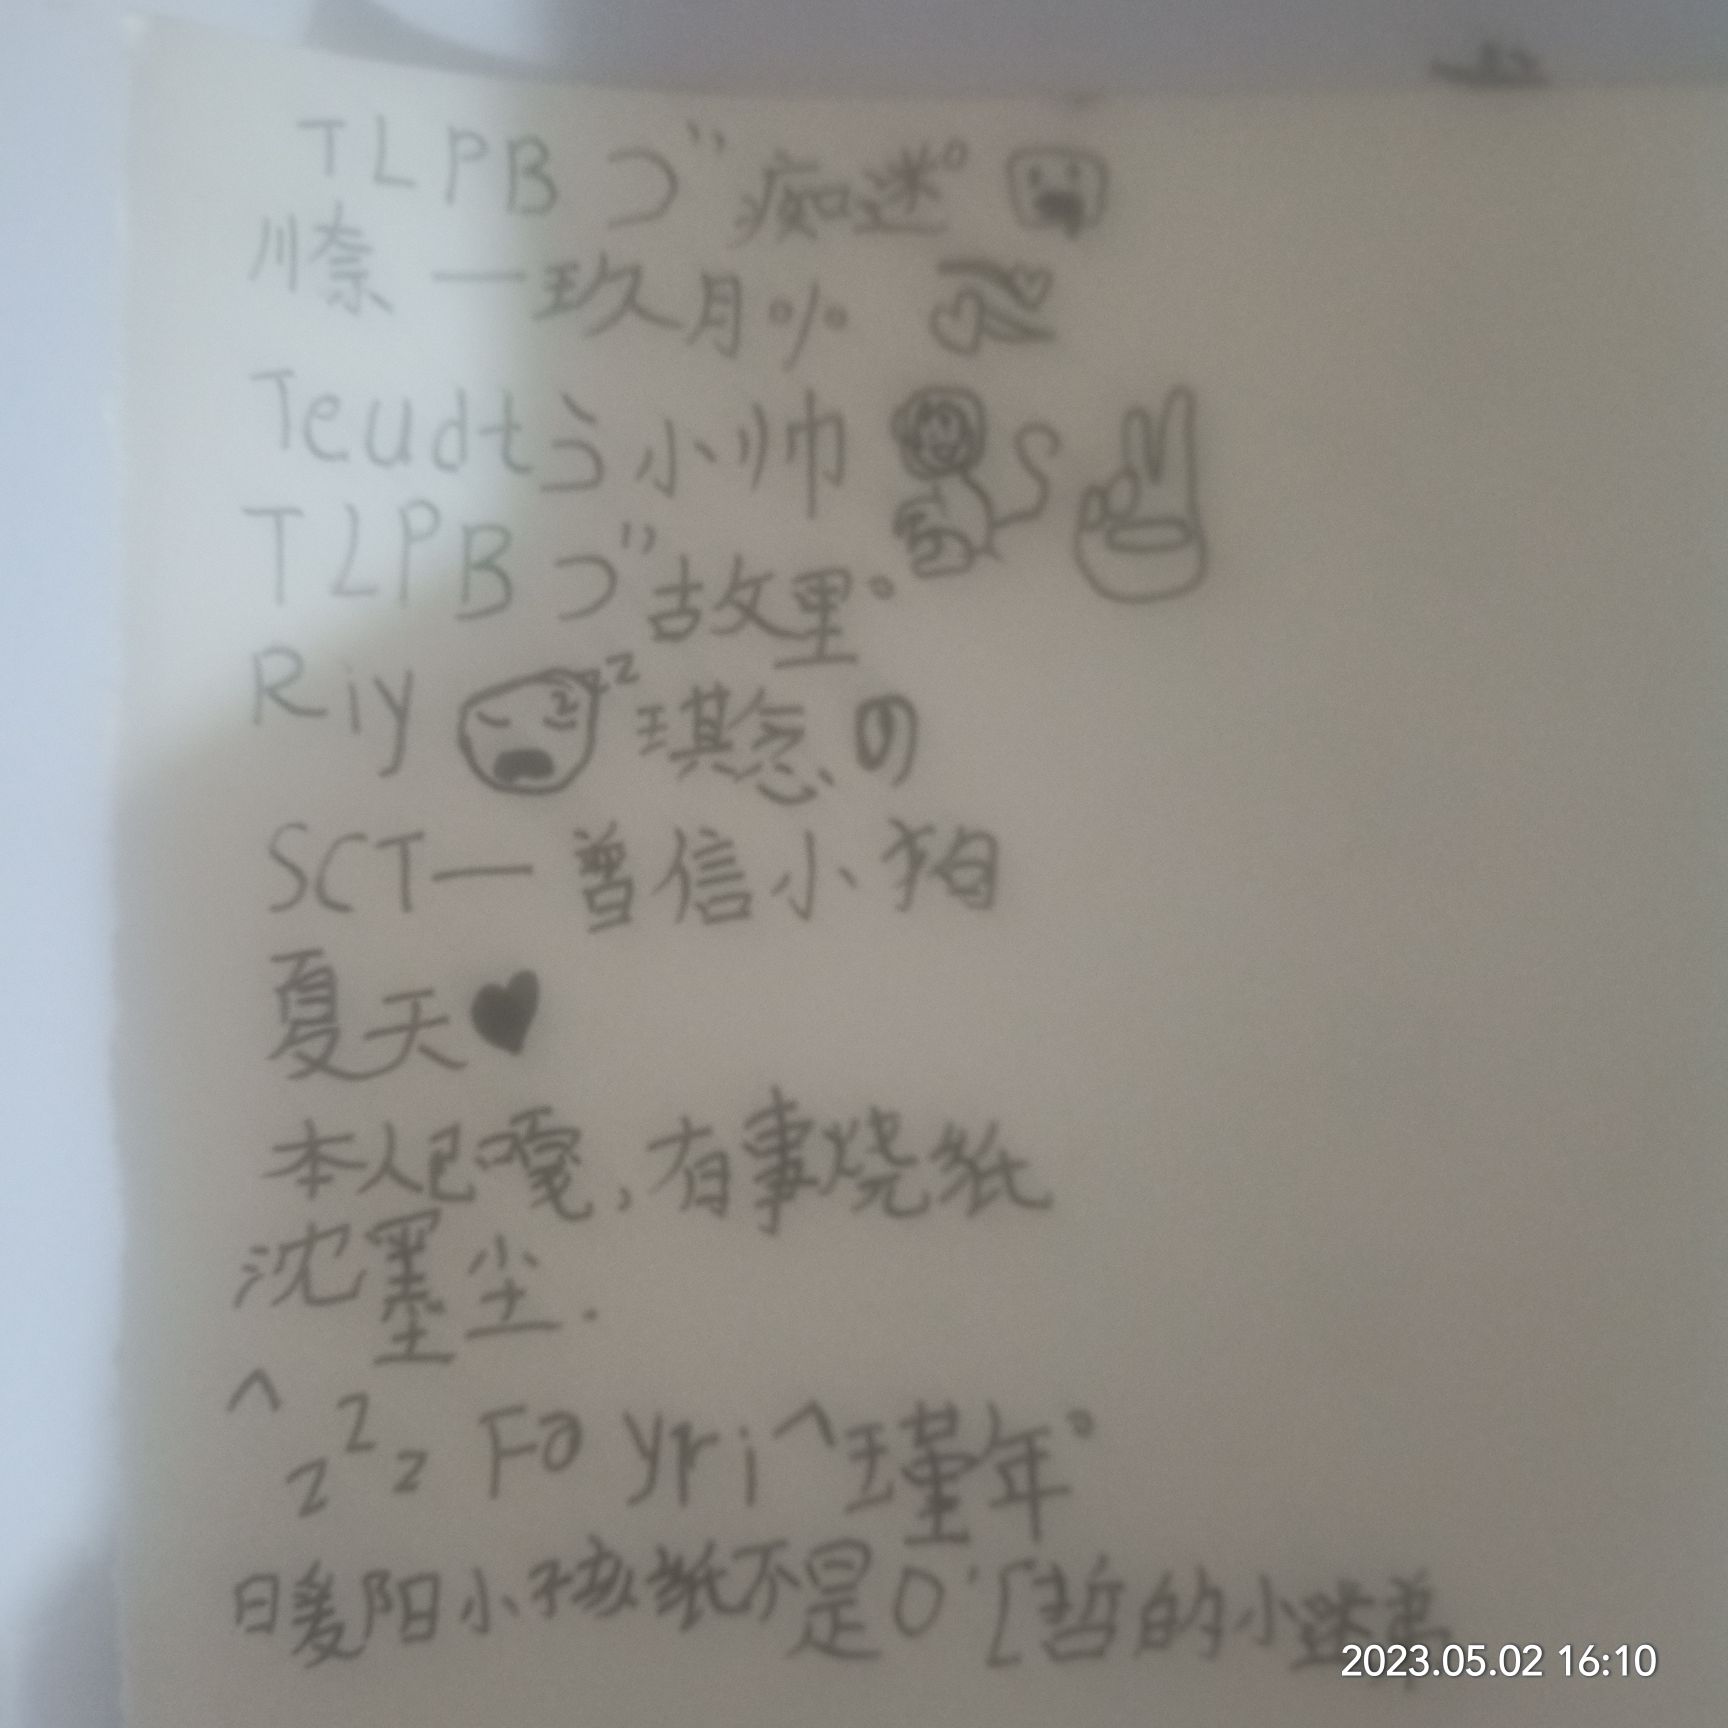 TLPB つ”痴迷°
川奈一玖月%
Teudtう小帅
TLPB つ”故里°
Riy zzz 琪念の
SCT一曾信小狗
夏天♥
本人已嘎,有事烧纸
沈墨尘.
^zzz Fayri^瑾年°
暖阳小孩纸不是O'[哲的小迷弟
2023.05.02 16:10